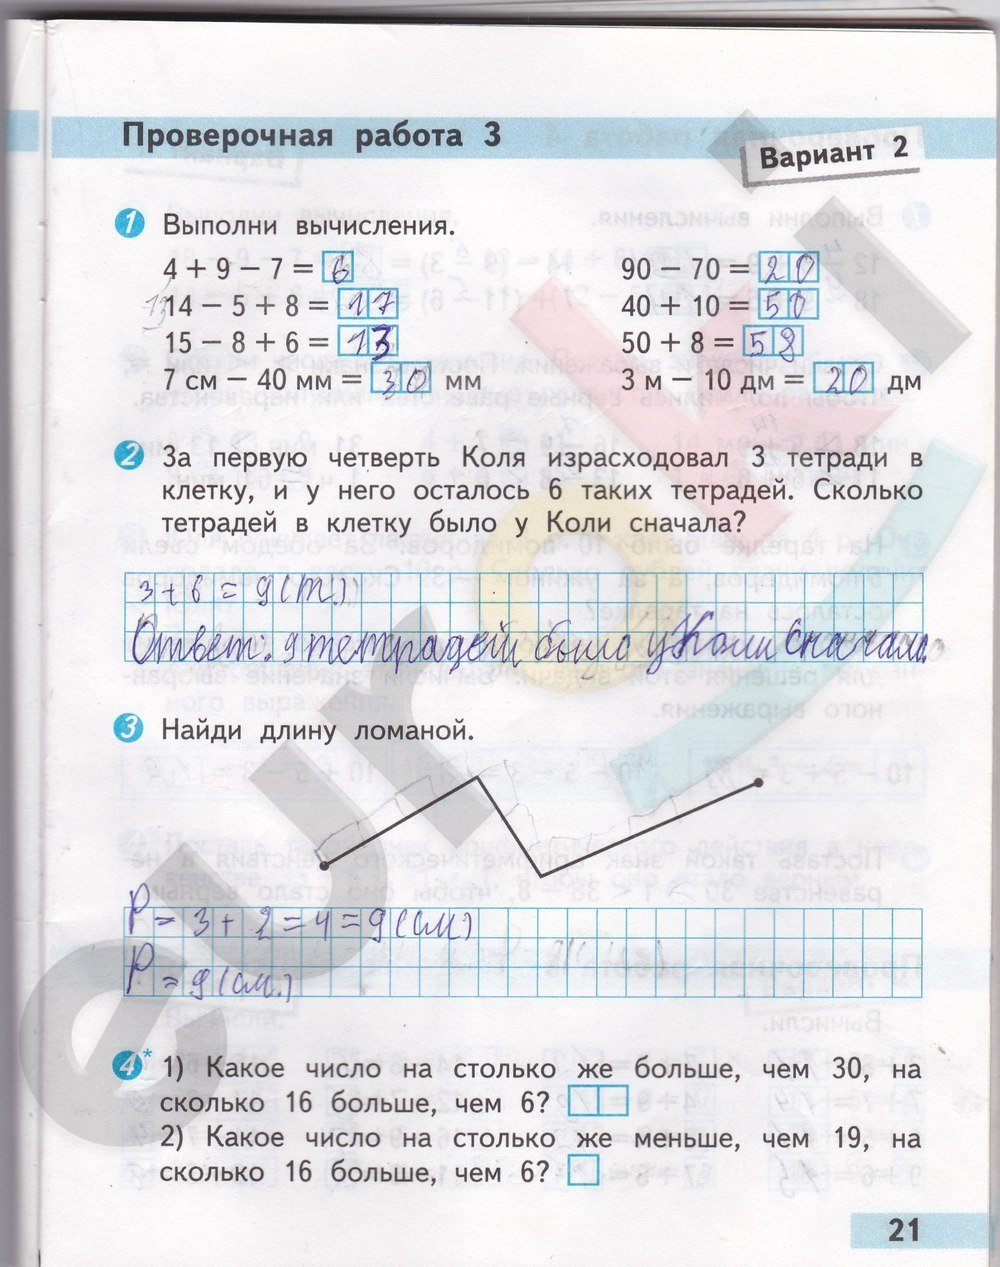 Проверочная работа 3
Вариант 2
1 Выполни вычисления.
4 + 9 − 7 = 6
90 − 70 = 20
13
14 − 5 + 8 = 17
40 + 10 = 50
15 − 8 + 6 = 13
50 + 8 = 58
7 см − 40 мм = 30 мм
3 м − 10 дм = 20 дм
2 За первую четверть Коля израсходовал 3 тетради в
клетку, и у него осталось 6 таких тетрадей. Сколько
тетрадей в клетку было у Коли сначала?
3 + 6 = 9 (т.)
Ответ: 9 тетрадей было у Коли сначала.
3 Найди длину ломаной.
P = 3 + 2 = 4 = 9 (см)
P = 9 (см.)
4* 1) Какое число на столько же больше, чем 30, на
сколько 16 больше, чем 6?
2) Какое число на столько же меньше, чем 19, на
сколько 16 больше, чем 6?
21